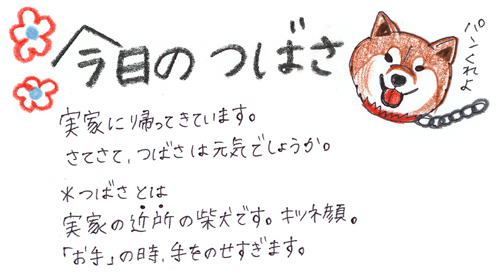 今日のつばさ
パンくれよ
実家に帰ってきています。
さてさて、つばさは元気でしょうか。
*つばさとは
実家の近所の柴犬です。キツネ顔。
「お手」の時、手をのせすぎます。